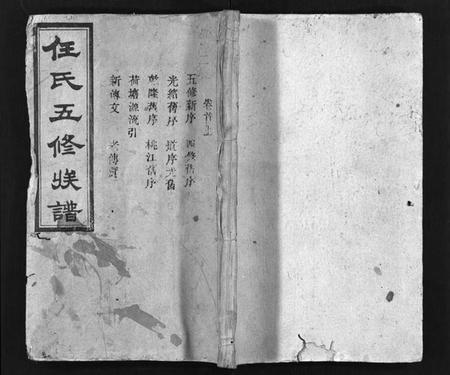 任氏五修族譜
卷首上
五修新序 四修舊序
光緒舊序 道序光舊
乾隆舊序 桃江舊序
荷塘源流引
新傳文 老傳贊